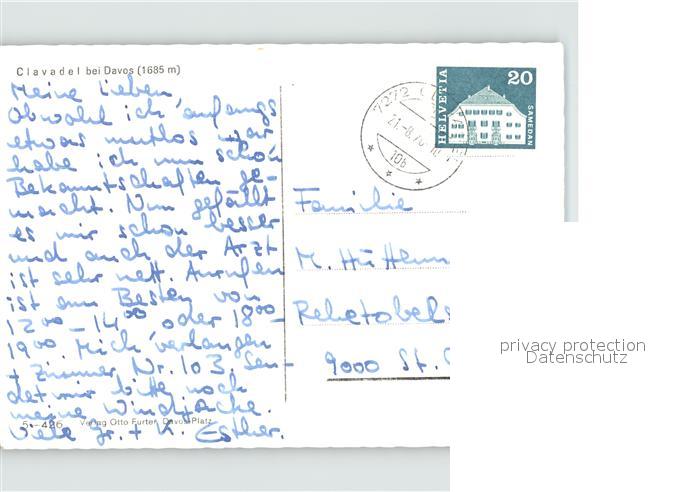 Clavadel bei Davos (1685 m)
Meine Lieben
Obwohl ich anfangs
etwas mutlos war
habe ich nun schon
Bekanntschaften ge-
macht. Nun gefällt
es mir schon besser
und auch der Arzt
ist sehr nett. Anrufen
ist am Besten von
12⁰⁰ – 14⁰⁰ oder 18⁰⁰ –
19⁰⁰ Mich verlangen
+ Zimmer Nr. 103. Sen-
det mir bitte noch
meine Windjacke.
Viele Gr. + K. Esther.
5-426 Verlag Otto Furter, Davos-Platz
HELVETIA
20
SAMEDAN
7272
21.-8.70
10b
Familie
M. Hüttenm
Rehetobels
9000 St. G
privacy protection
Datenschutz